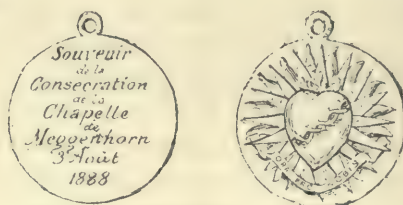 Souvenir
de la
Consecration
de la
Chapelle
de
Meggenhorn
3 Août
1888